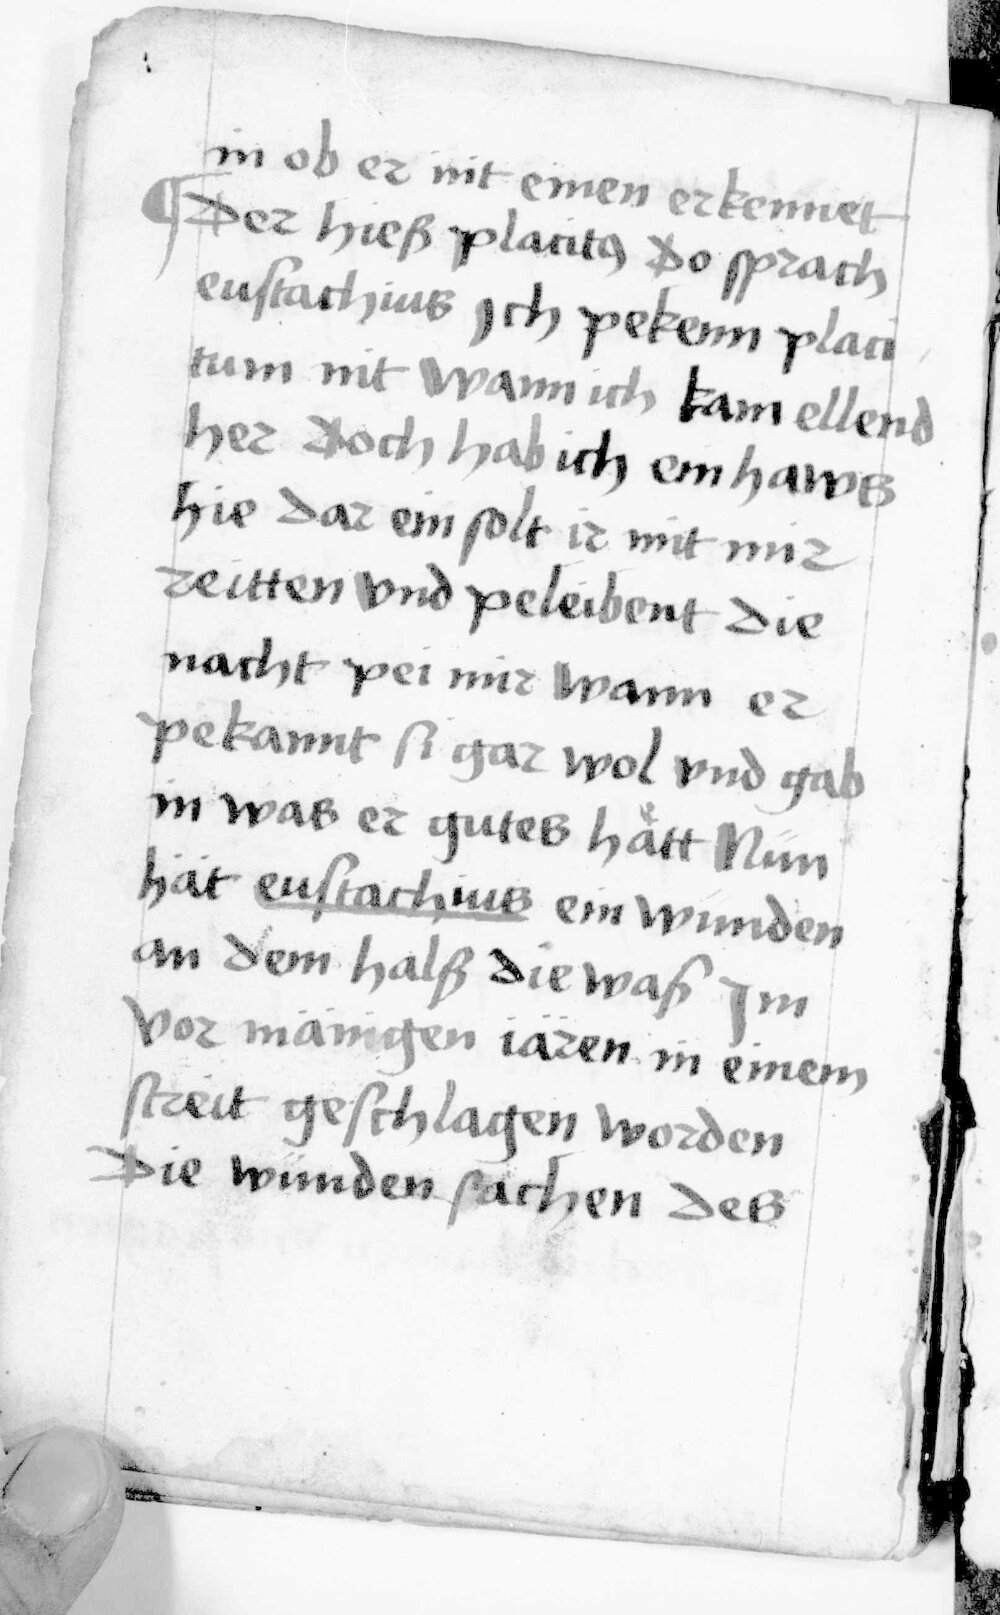 in ob er nit einen erkennet
¶ Der hieß placitꝯ Do sprach
eustachius Ich pekenn placi
tum nit Wann ich kam ellend
her Doch hab ich ein haws
hie dar ein solt ir mit mir
reitten vnd peleibent die
nacht pei mir Wann er
pekannt si gar wol vnd gab
in was er gutes hͤatt Nün
hät eustachius ein wunden
an dem halß die waß Im
vor mänigen iären in einem
streit geschlagen worden
Die wünden sachen des